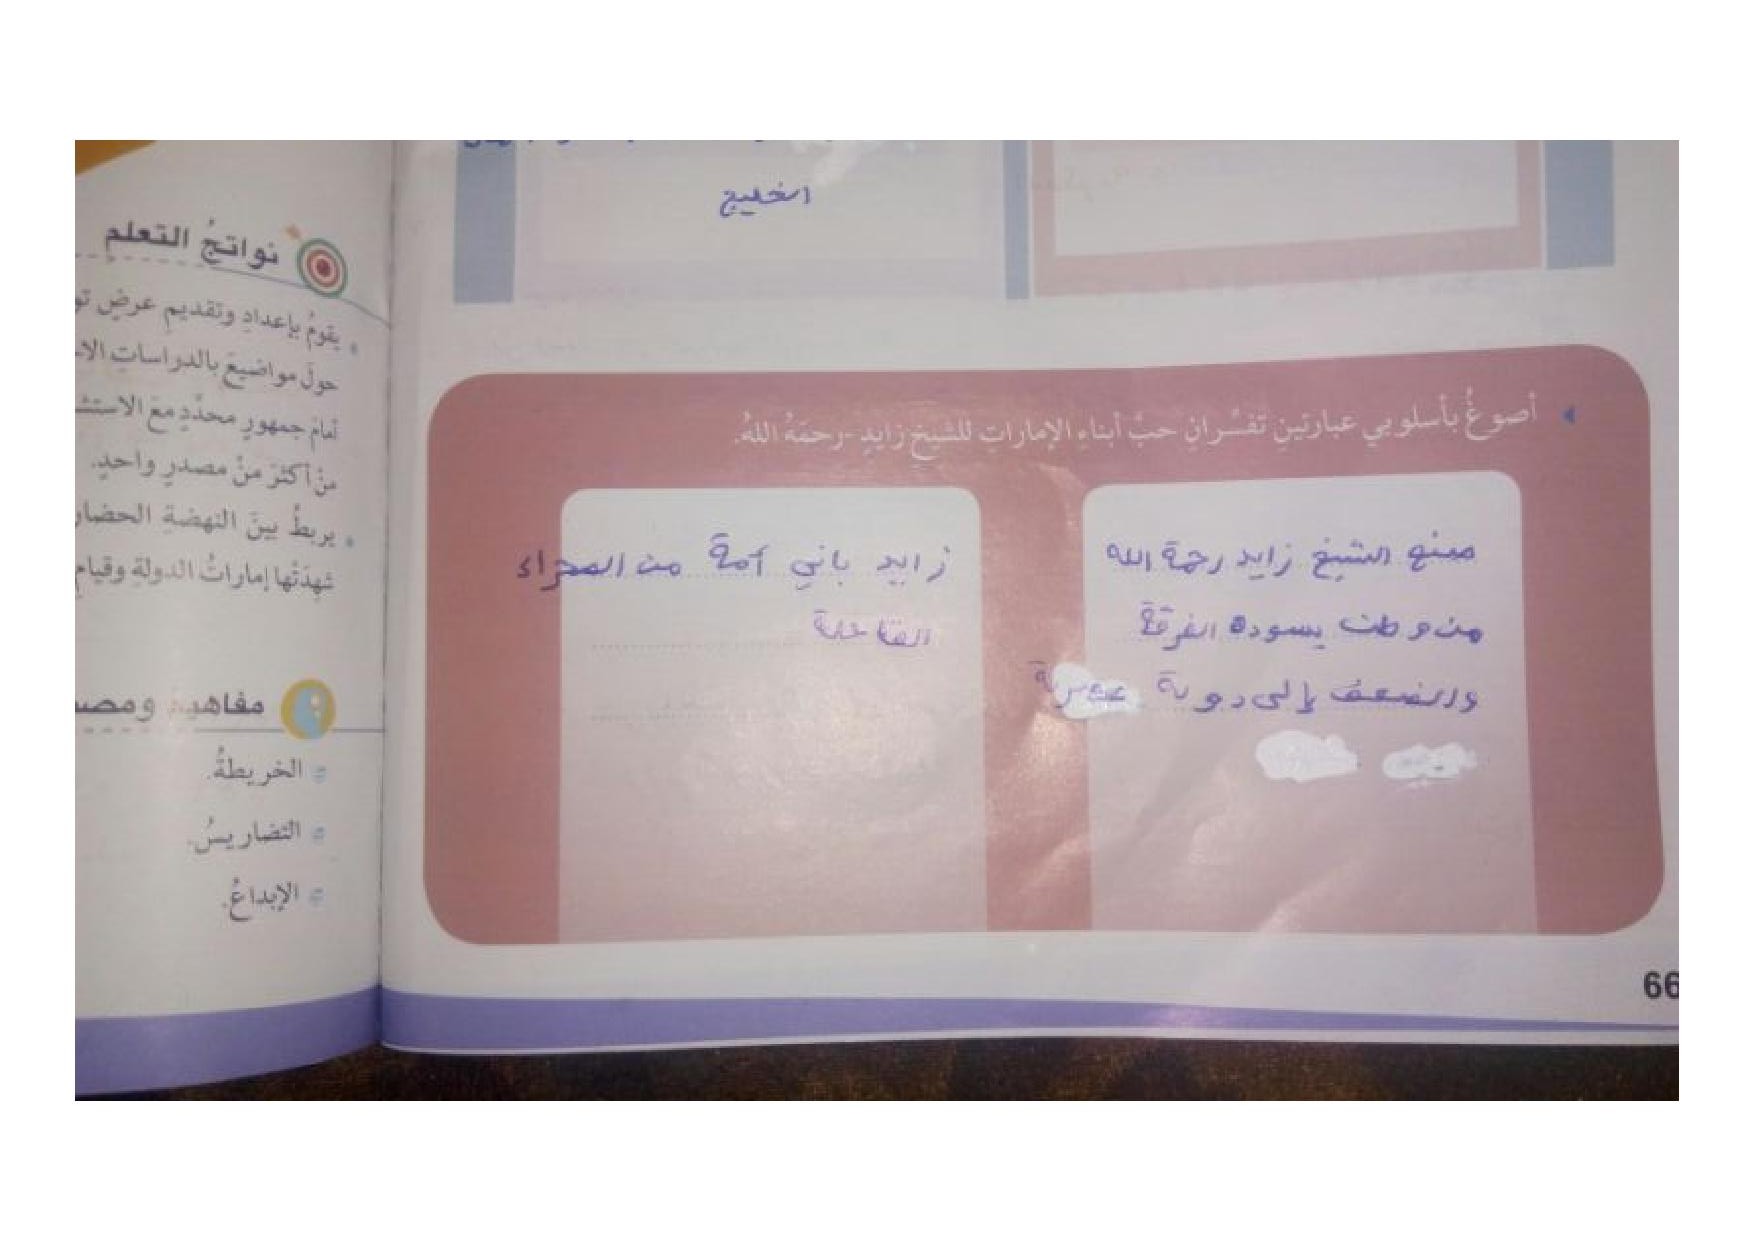 الخليج
أصوغُ بأسلوبي عبارتينِ تفسِّرانِ حبَّ أبناءِ الإماراتِ للشيخِ زايدٍ -رحمَهُ اللهُ.
صنع الشيخ زايد رحمة الله
من وطن يسوده الفرقة
والضعف إلى دولة عصرية
زايد باني أمة من الصحراء
القاحلة
66
نواتجُ التعلم
يقومُ بإعدادِ وتقديمِ عرضٍ
حولَ مواضيعَ بالدراساتِ
أمامَ جمهورٍ محدَّدٍ معَ
منْ أكثرَ منْ مصدرٍ واحدٍ.
يربطُ بينَ النهضةِ
شهِدَتْها إماراتُ الدولةِ وقيامِ
مفاهيمُ
الخريطةُ.
التضاريسُ.
الإبداعُ.